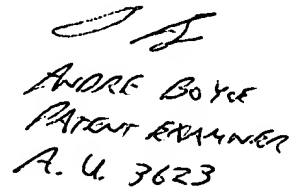 ANDRE BOYCE
PATENT EXAMINER
A. U. 3623